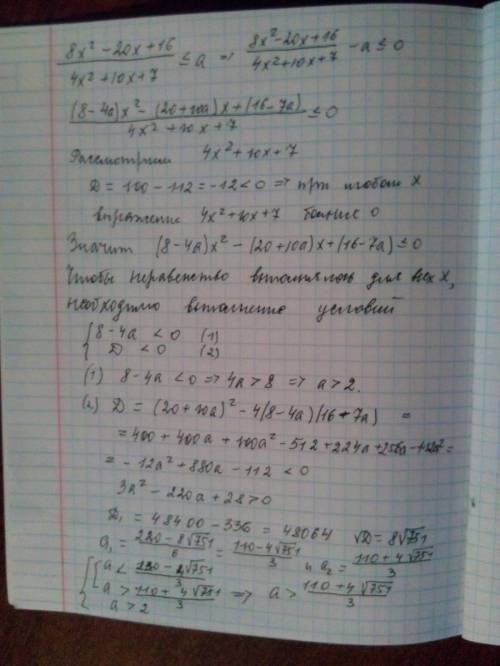 (8x² - 20x + 16)/(4x² + 10x + 7) ≤ a ⇒ (8x² - 20x + 16)/(4x² + 10x + 7) - a ≤ 0
((8-4a)x² - (20+10a)x + (16-7a))/(4x² + 10x + 7) ≤ 0
Рассмотрим 4x² + 10x + 7
D = 100 - 112 = -12 < 0 ⇒ при любом x
выражение 4x² + 10x + 7 больше 0
Значит (8-4a)x² - (20+10a)x + (16-7a) ≤ 0
Чтобы неравенство выполнялось для всех x,
необходимо выполнение условий
{ 8-4a < 0 (1)
{ D < 0 (2)
(1) 8-4a < 0 ⇒ 4a > 8 ⇒ a > 2.
(2) D = (20+10a)² - 4(8-4a)(16-7a) =
= 400 + 400a + 100a² - 512 + 224a + 256a - 112a² =
= -12a² + 880a - 112 < 0
3a² - 220a + 28 > 0
D₁ = 48400 - 336 = 48064 √D = 8√751
a₁ = (220 - 8√751)/6 = (110 - 4√751)/3 и a₂ = (110 + 4√751)/3
{ a < (110 - 4√751)/3
{ a > (110 + 4√751)/3 ⇒ a > (110 + 4√751)/3
{ a > 2